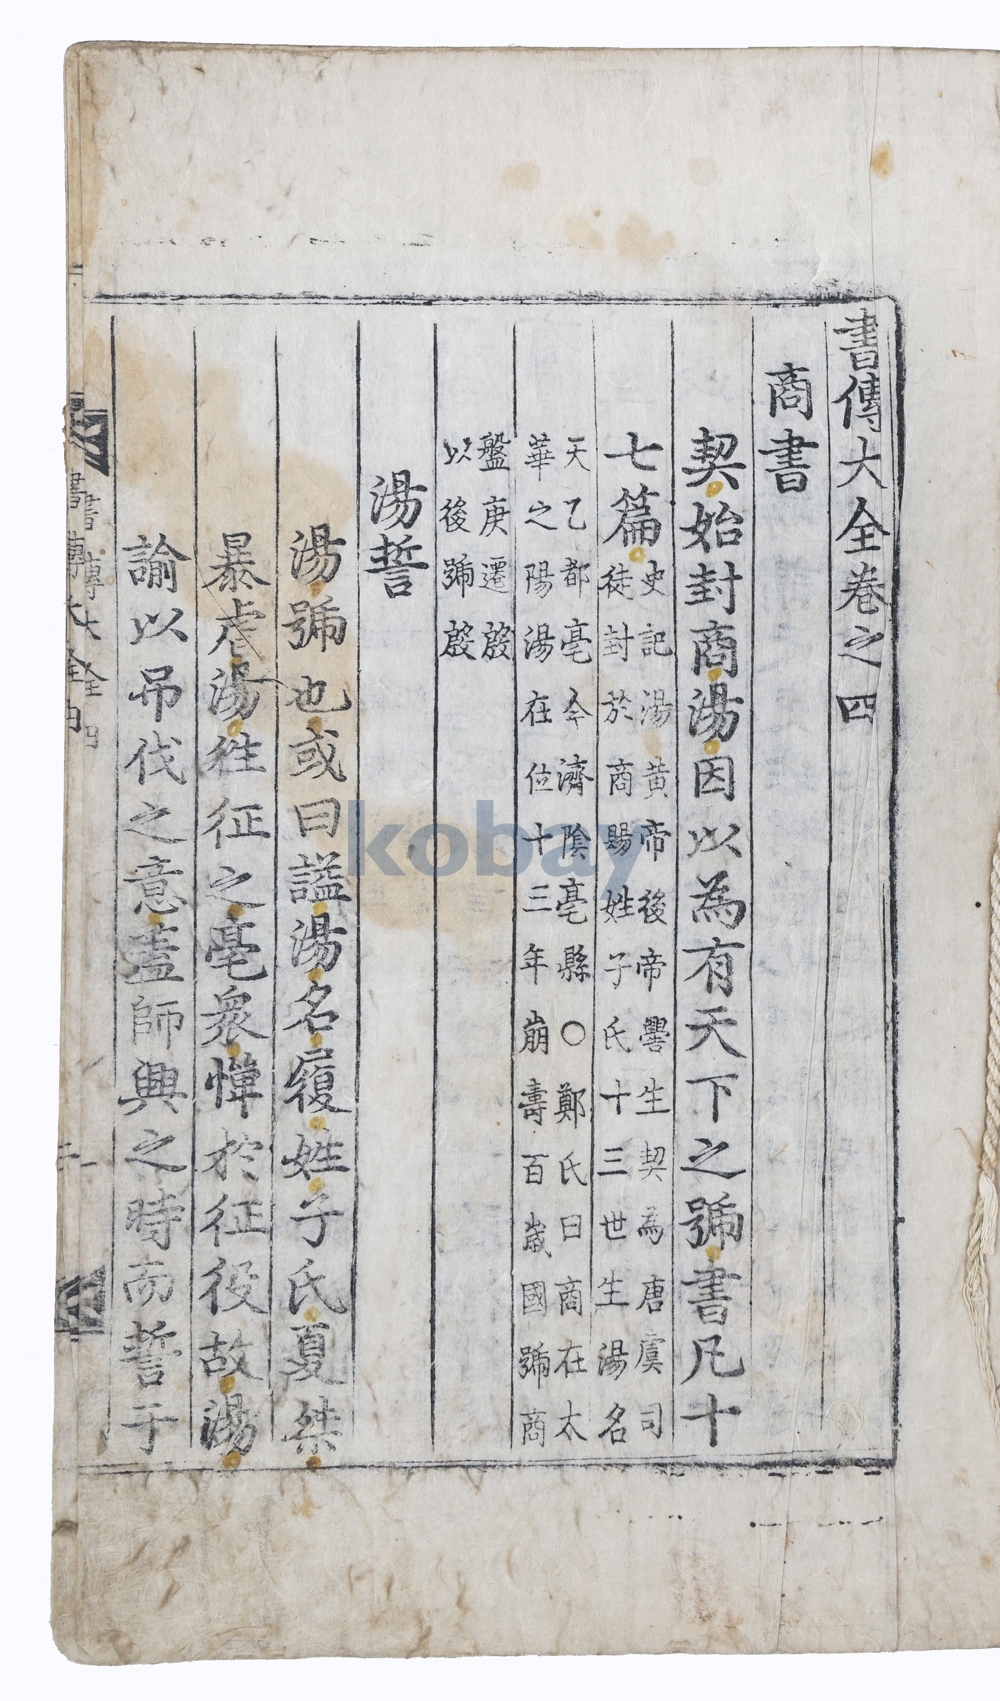 書傳大全卷之四
商書
契始封商湯因以為有天下之號書凡十
七篇
史記湯黃帝後帝嚳生契為唐虞司
徒封於商賜姓子氏十三世生湯名
天乙都亳今濟陰亳縣○鄭氏曰商在太
華之陽湯在位十三年崩壽百歲國號商
盤庚遷殷
以後號殷
湯誓
湯號也或曰謚湯名履姓子氏夏桀
暴虐湯往征之亳衆憚於征役故湯
諭以吊伐之意盖師興之時而誓于
書傳大全四
書傳大全四
kobay